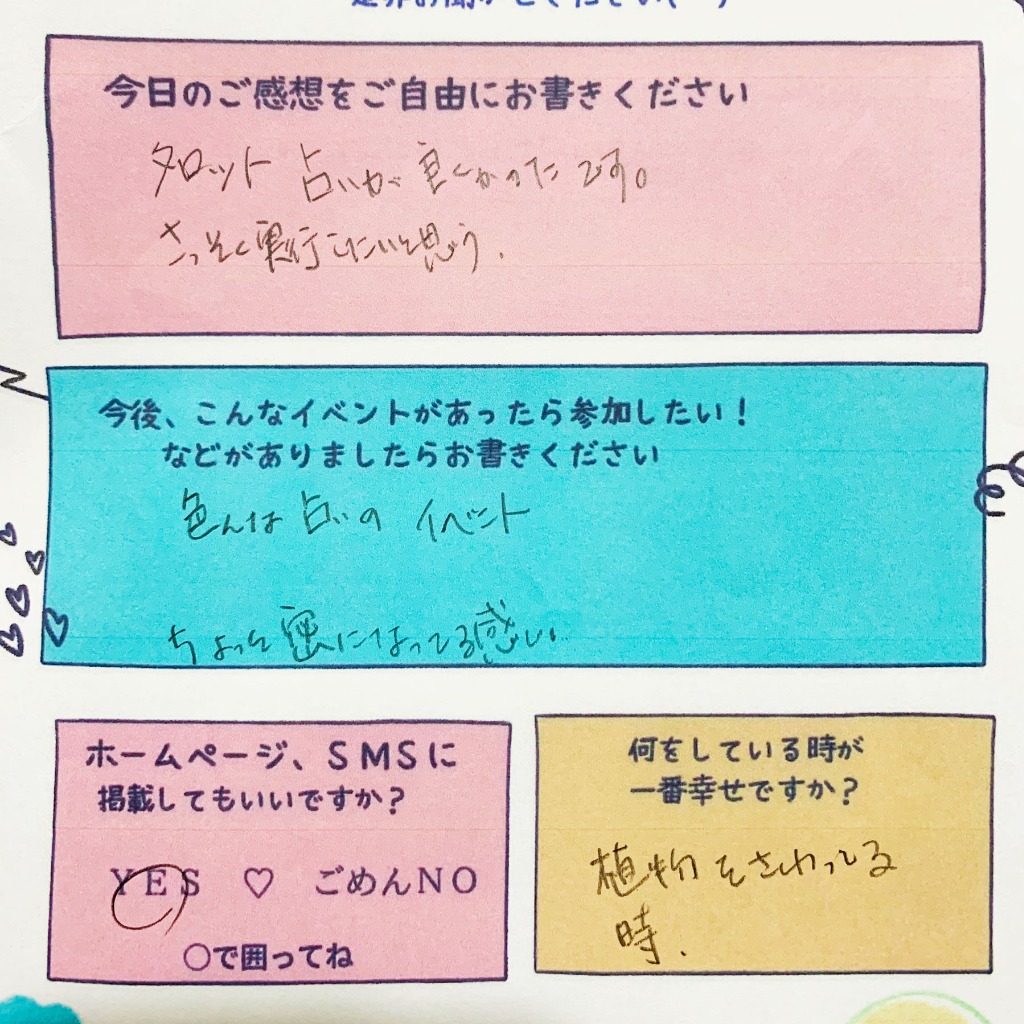 今日のご感想をご自由にお書きください
タロット占いが良くかったです。
さっそく実行したいと思う.
今後、こんなイベントがあったら参加したい!
などがありましたらお書きください
色んな占いのイベント
ちょっと密になってる感じ。
ホームページ、SMSに
掲載してもいいですか?
YES ♡ ごめんNO
○で囲ってね
何をしている時が
一番幸せですか?
植物をさわってる
時.